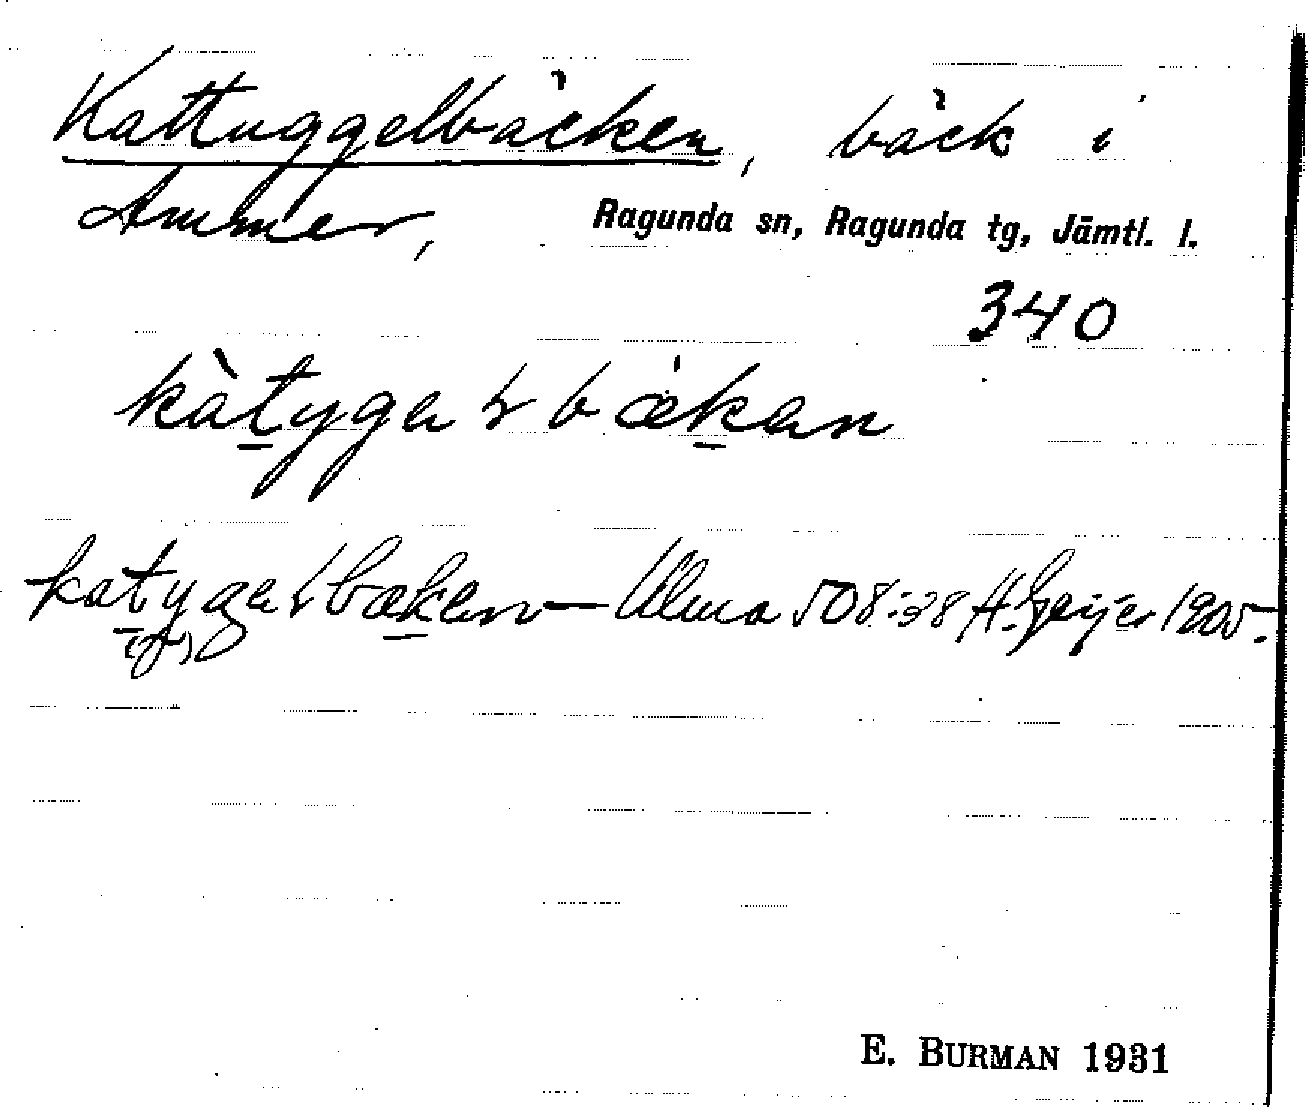 Kattuggelbäcken, bäck i
Ammer, Ragunda sn, Ragunda tg, Jämtl. l.
340
kàtygaɽbækan
katygaɽbækan — Ulma 508:38 H. Geijer 1905.
E. BURMAN 1931